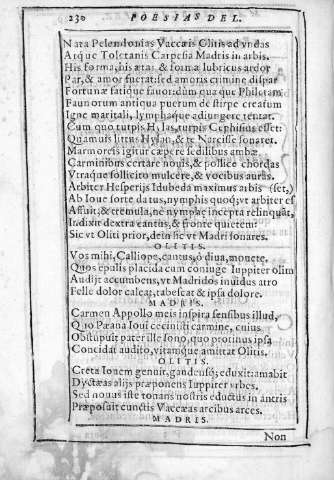 230 POESIAS DEL.
Nata Pelendonias Vaccæis Olitis ad vndas
Atque Toletanis Carpesia Madris in arbis.
His forma, his ætas, & formæ lubricus ardor
Par, & amor fuerat: sed amoris crimine dispar
Fortunæ fatique fauor: dum qua que Philetam
Faunorum antiqua puerum de stirpe creatum
Igne maritali, lymphaque adiungere tentat.
Cum quo turpis Hylas, turpis Cephisius esset:
Quamuis littus Hylan, & te Narcisse sonaret.
Marmoreis igitur cæpere sedilibus ambæ
Carminibus certare nouis, & pollice chordas
Vtraque sollicito mulcere, & vocibus auras.
Arbiter Hesperijs Idubeda maximus arbis (set,)
Ab Ioue forte datus, nymphis quoq; vt arbiter es
Affuit; & tremula, ne nymphæ incepta relinquãt,
Indixit dextra cantus, & fronte quietem:
Sic vt Oliti prior, dein sic vt Madri sonares.
OLITIS.
Vos mihi, Calliope, cantus, ò diua, monete.
Quos epulis placida cum coniuge Iuppiter olim
Audijt accumbens, vt Madridos inuidus atro
Felle dolor caleat, tabescat & ipsa dolore.
MADRIS.
Carmen Appollo meis inspira sensibus illud,
Quo Pæana Ioui cecinisti carmine, cuius
Obstupuit pater ille sono, quo protinus ipsa
Concidat audito, vitamque amittat Olitis.
OLITIS.
Creta Iouem genuit, gaudensq; eduxit: amabit
Dyctæas alijs præponens Iuppiter vrbes.
Sed nouus iste tonans nostris eductus in antris
Præposuit cunctis Vaccæas arcibus arces.
MADRIS.
Non